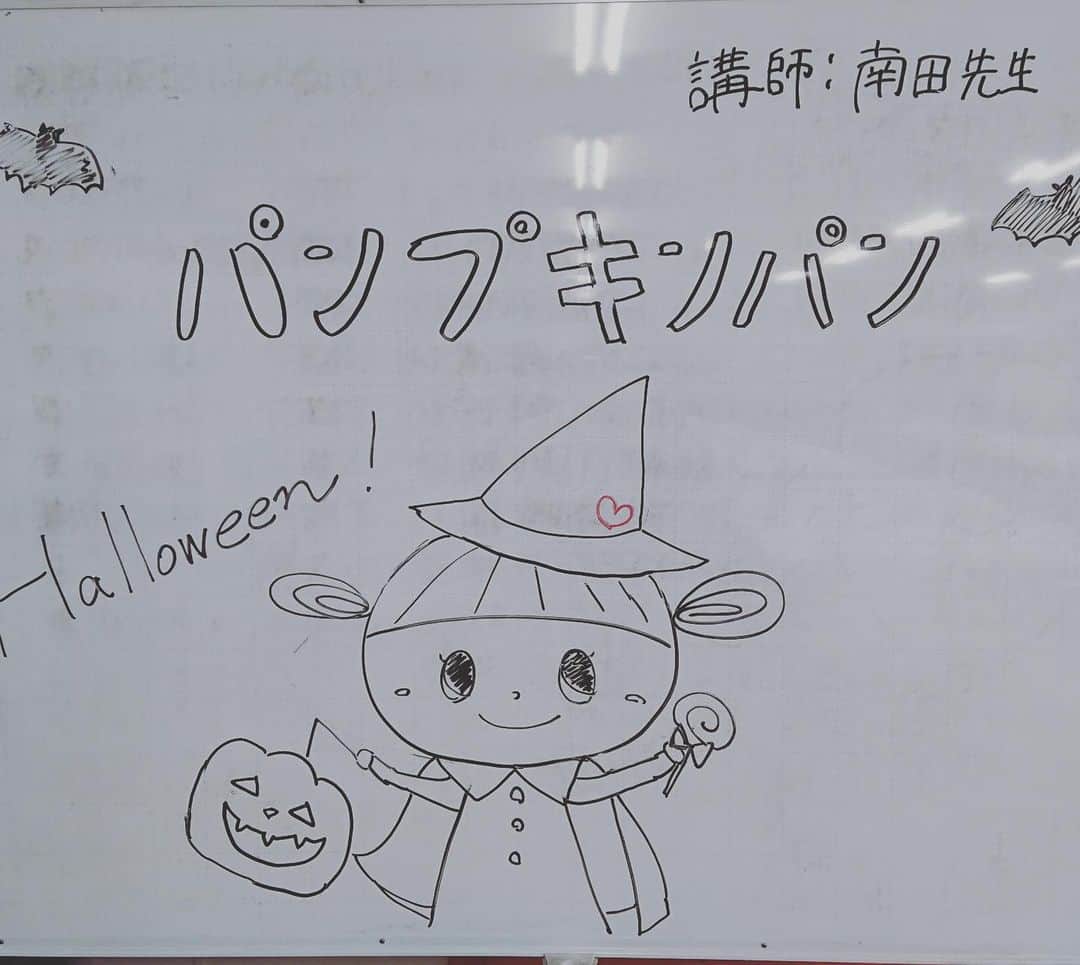 講師:南田先生
パンプキンパン
Halloween!